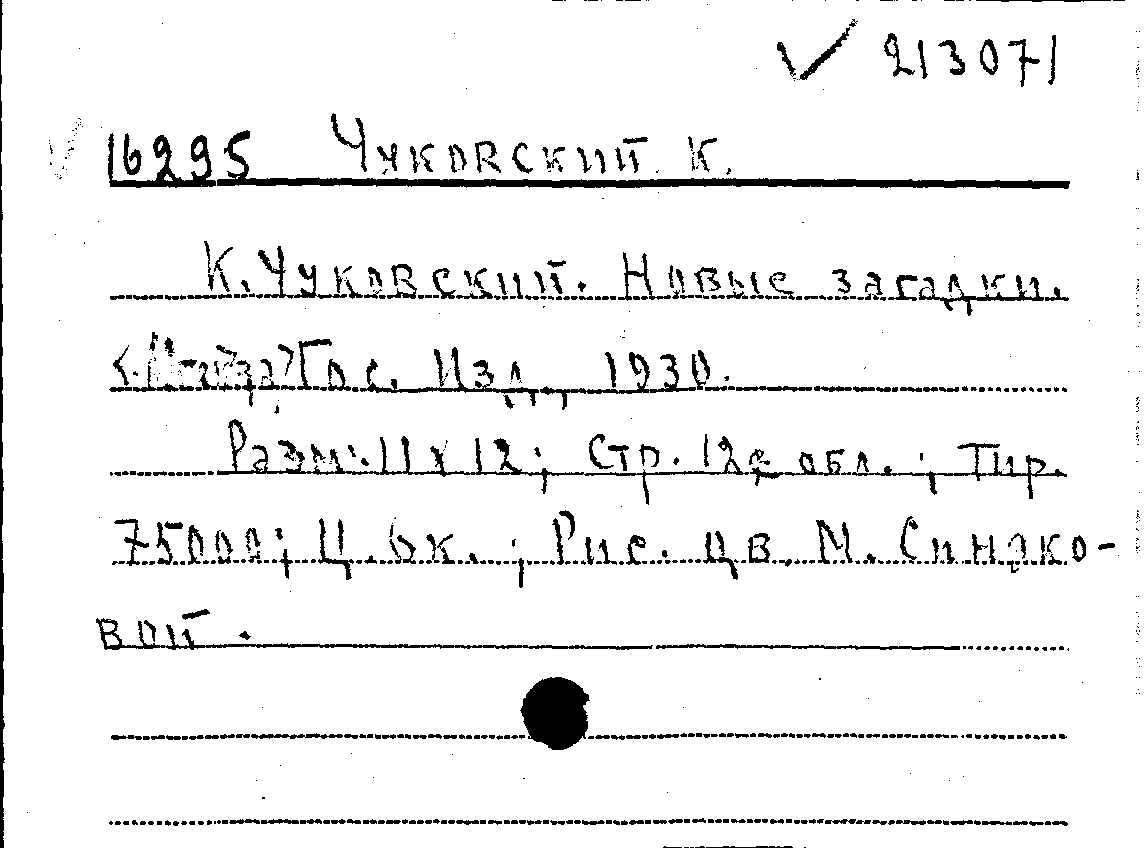 ✓ 213071
16295 Чуковский К.
К. Чуковский. Новые загадки.
Гос. Изд., 1930.
Разм. 11 х 12; Стр. 12 с обл.; Тир.
75000; Ц. 6 к.; Рис. цв. М. Синяко-
вой.